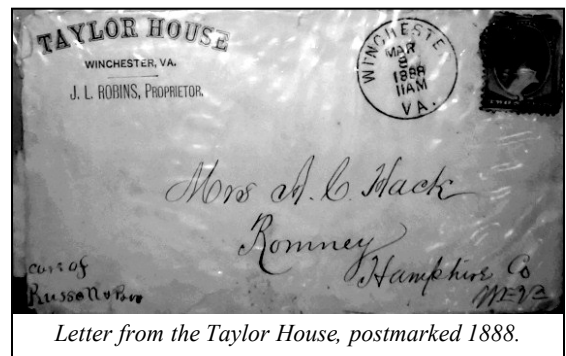 TAYLOR HOUSE
WINCHESTER, VA.
J. L. ROBINS, PROPRIETOR.
WINCHESTE
MAR
1888
11AM
VA.
Mrs A. C. Hack
Romney
Hampshire Co
care of
Letter from the Taylor House, postmarked 1888.